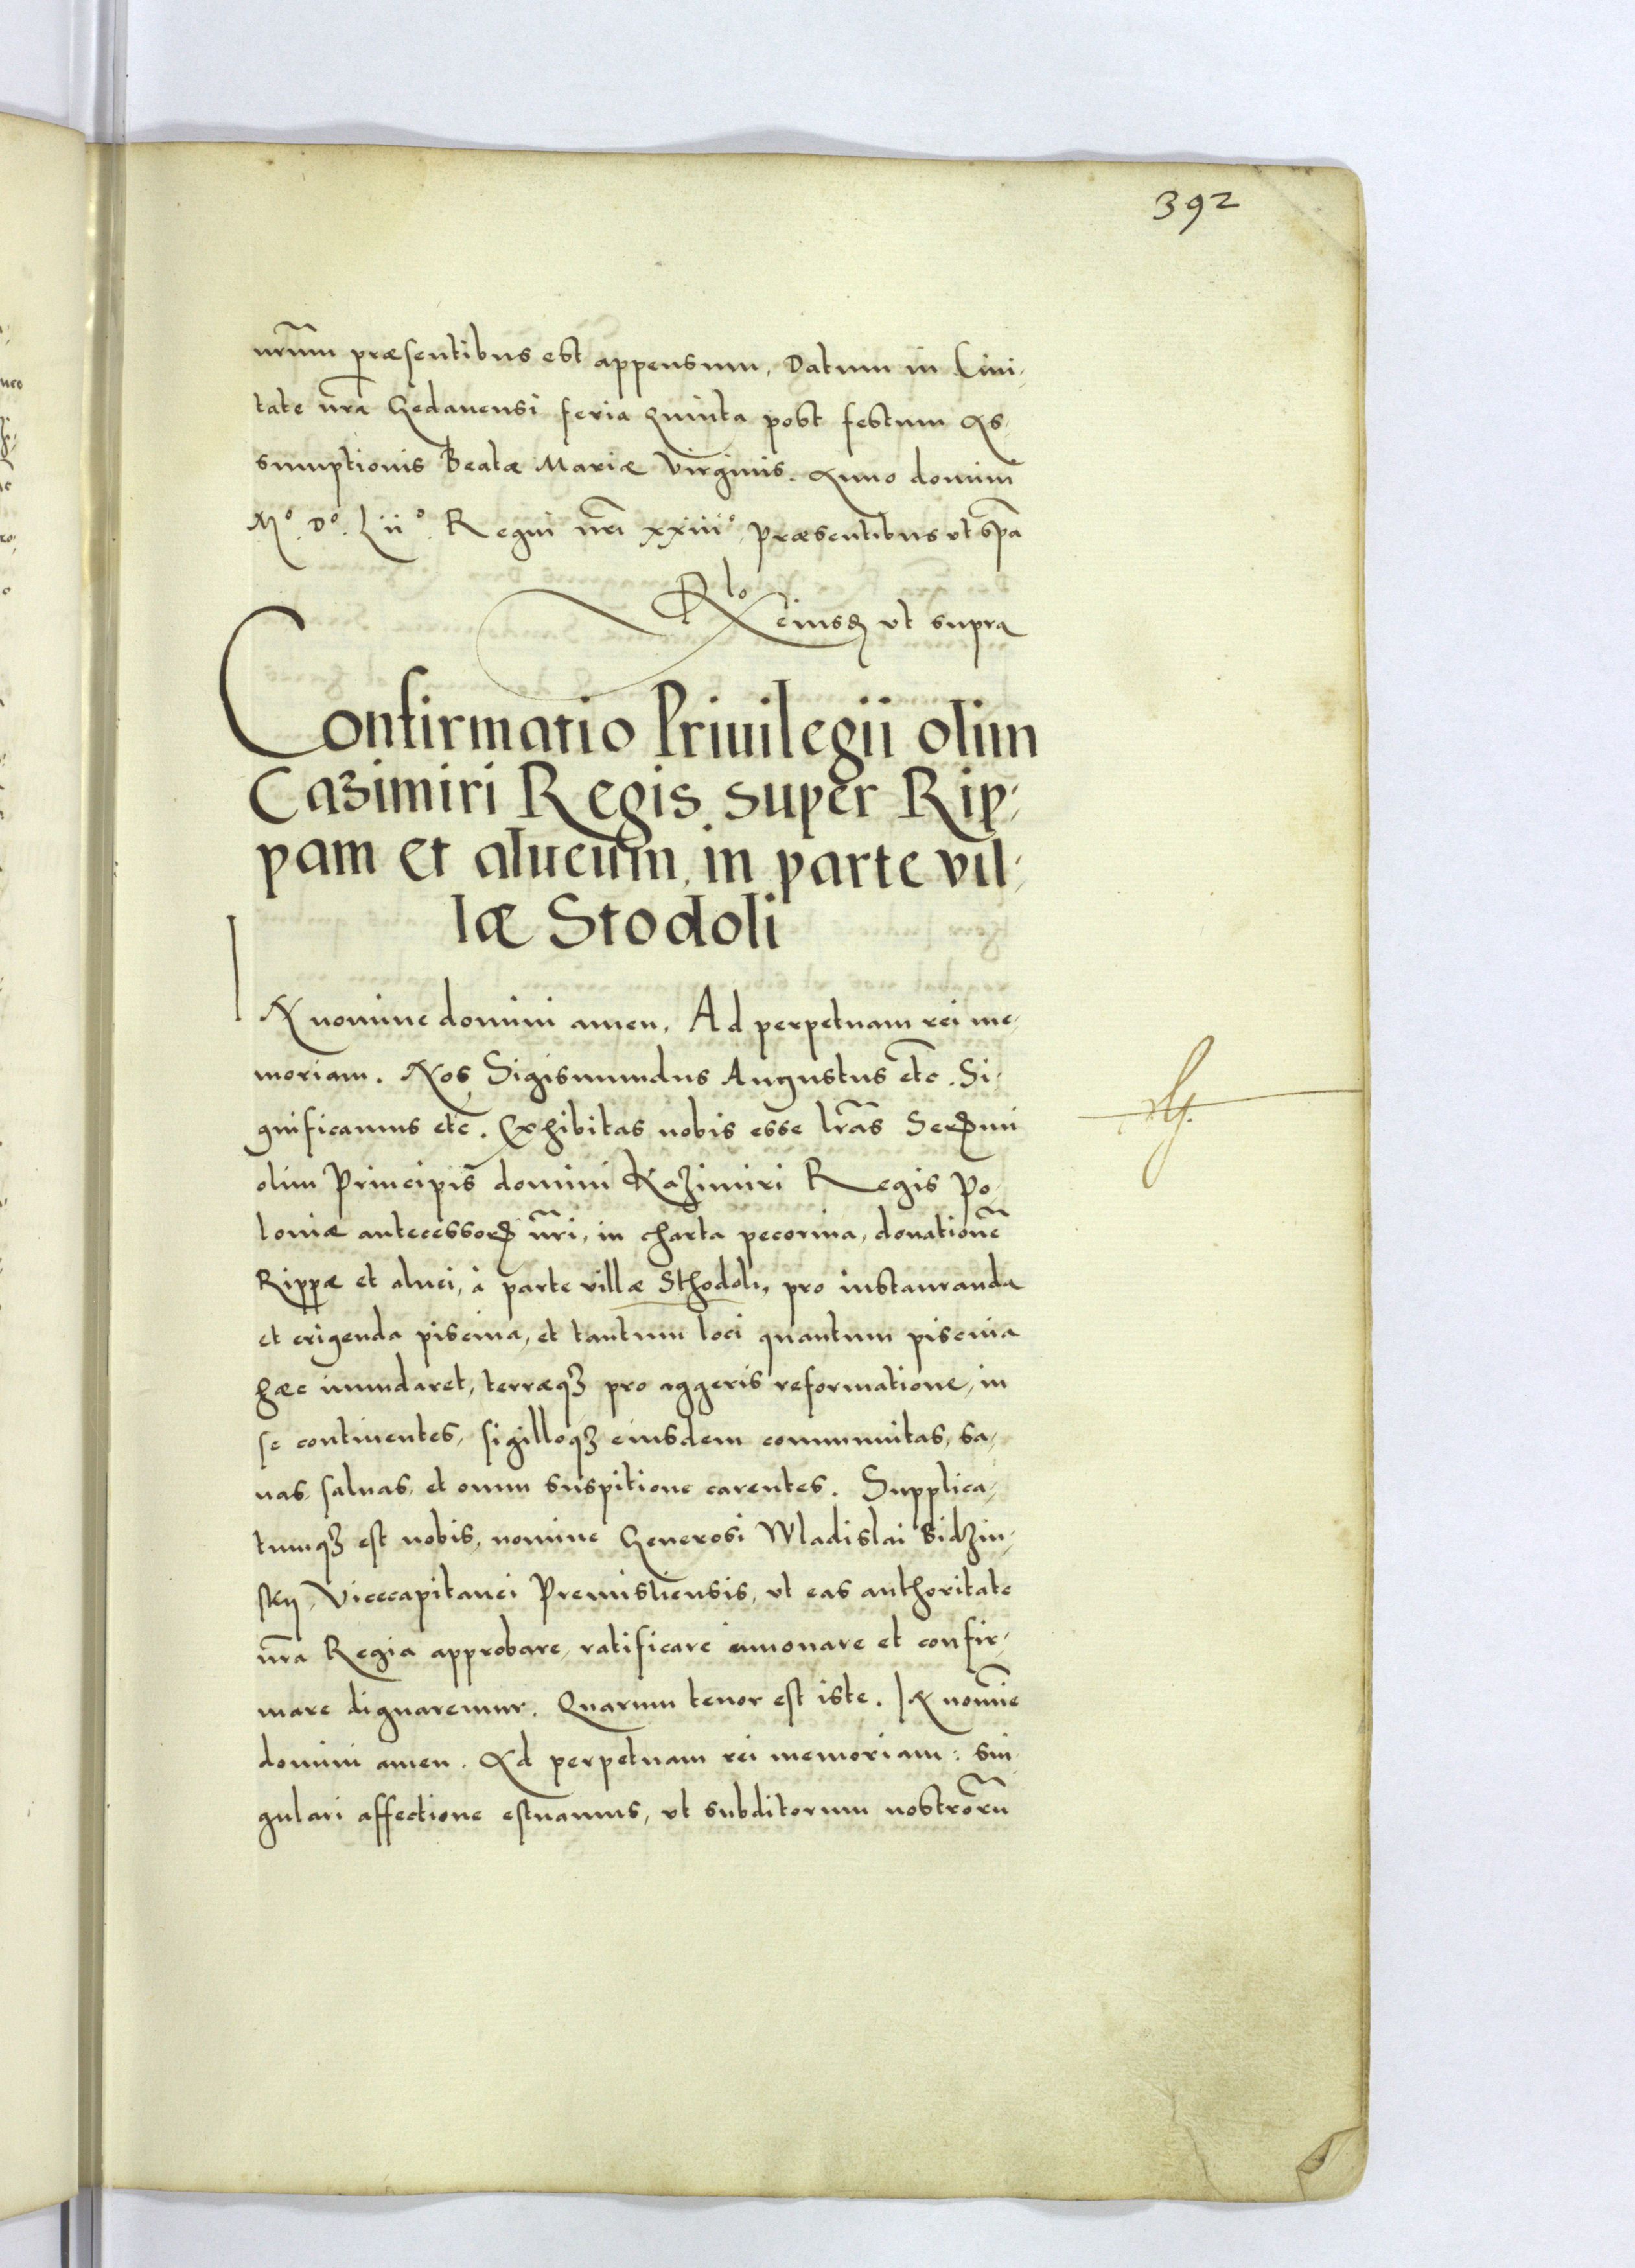 392
nr̃um præsentibus est appensum, Datum in Ciui-
tate nr̃a Gedanensi feria Quinta post festum As-
sumptionis Beatæ Mariæ Virginis. Anno domini
Mº. Dº. Lijº. Regni nr̃i xxiiiº. Præsentibus vt sp̃a
Rlo eiusd vt supra
Confirmatio Priuilegii olim
Cazimiri Regis, super Rip-
pam et alueum, in parte vil-
læ Stodoli
IN nomine domini amen. Ad perpetuam rei me-
moriam. Nos Sigismundus Augustus etc̃. Si-
gnificamus etc̃. Exhibitas nobis esse lr̃as Serẽmi
olim Principis domini Kazimiri Regis Po-
loniæ antecessoris nr̃i, in charta pecorina, donationẽ
Rippæ et aluei, à parte villæ Sthodoli, pro instauranda
et erigenda piscina, et tantum loci quantum piscina
hæc inundaret, terræqȝ pro aggeris reformatione, in
se continentes, sigilloqȝ eiusdem communitas, sa-
nas, saluas, et omni suspitione carentes. Supplica-
tumqȝ est nobis, nomine Generosi Wladislai Bidzin-
skij, Vicecapitanei Premisliensis, vt eas authoritate
nr̃a Regia approbare, ratificare innouare et confir-
mare dignaremur. Quarum tenor est iste. IN nomie
domini amen. Ad perpetuam rei memoriam: Sin-
gulari affectione estuamus, vt subditorum nostrorũ